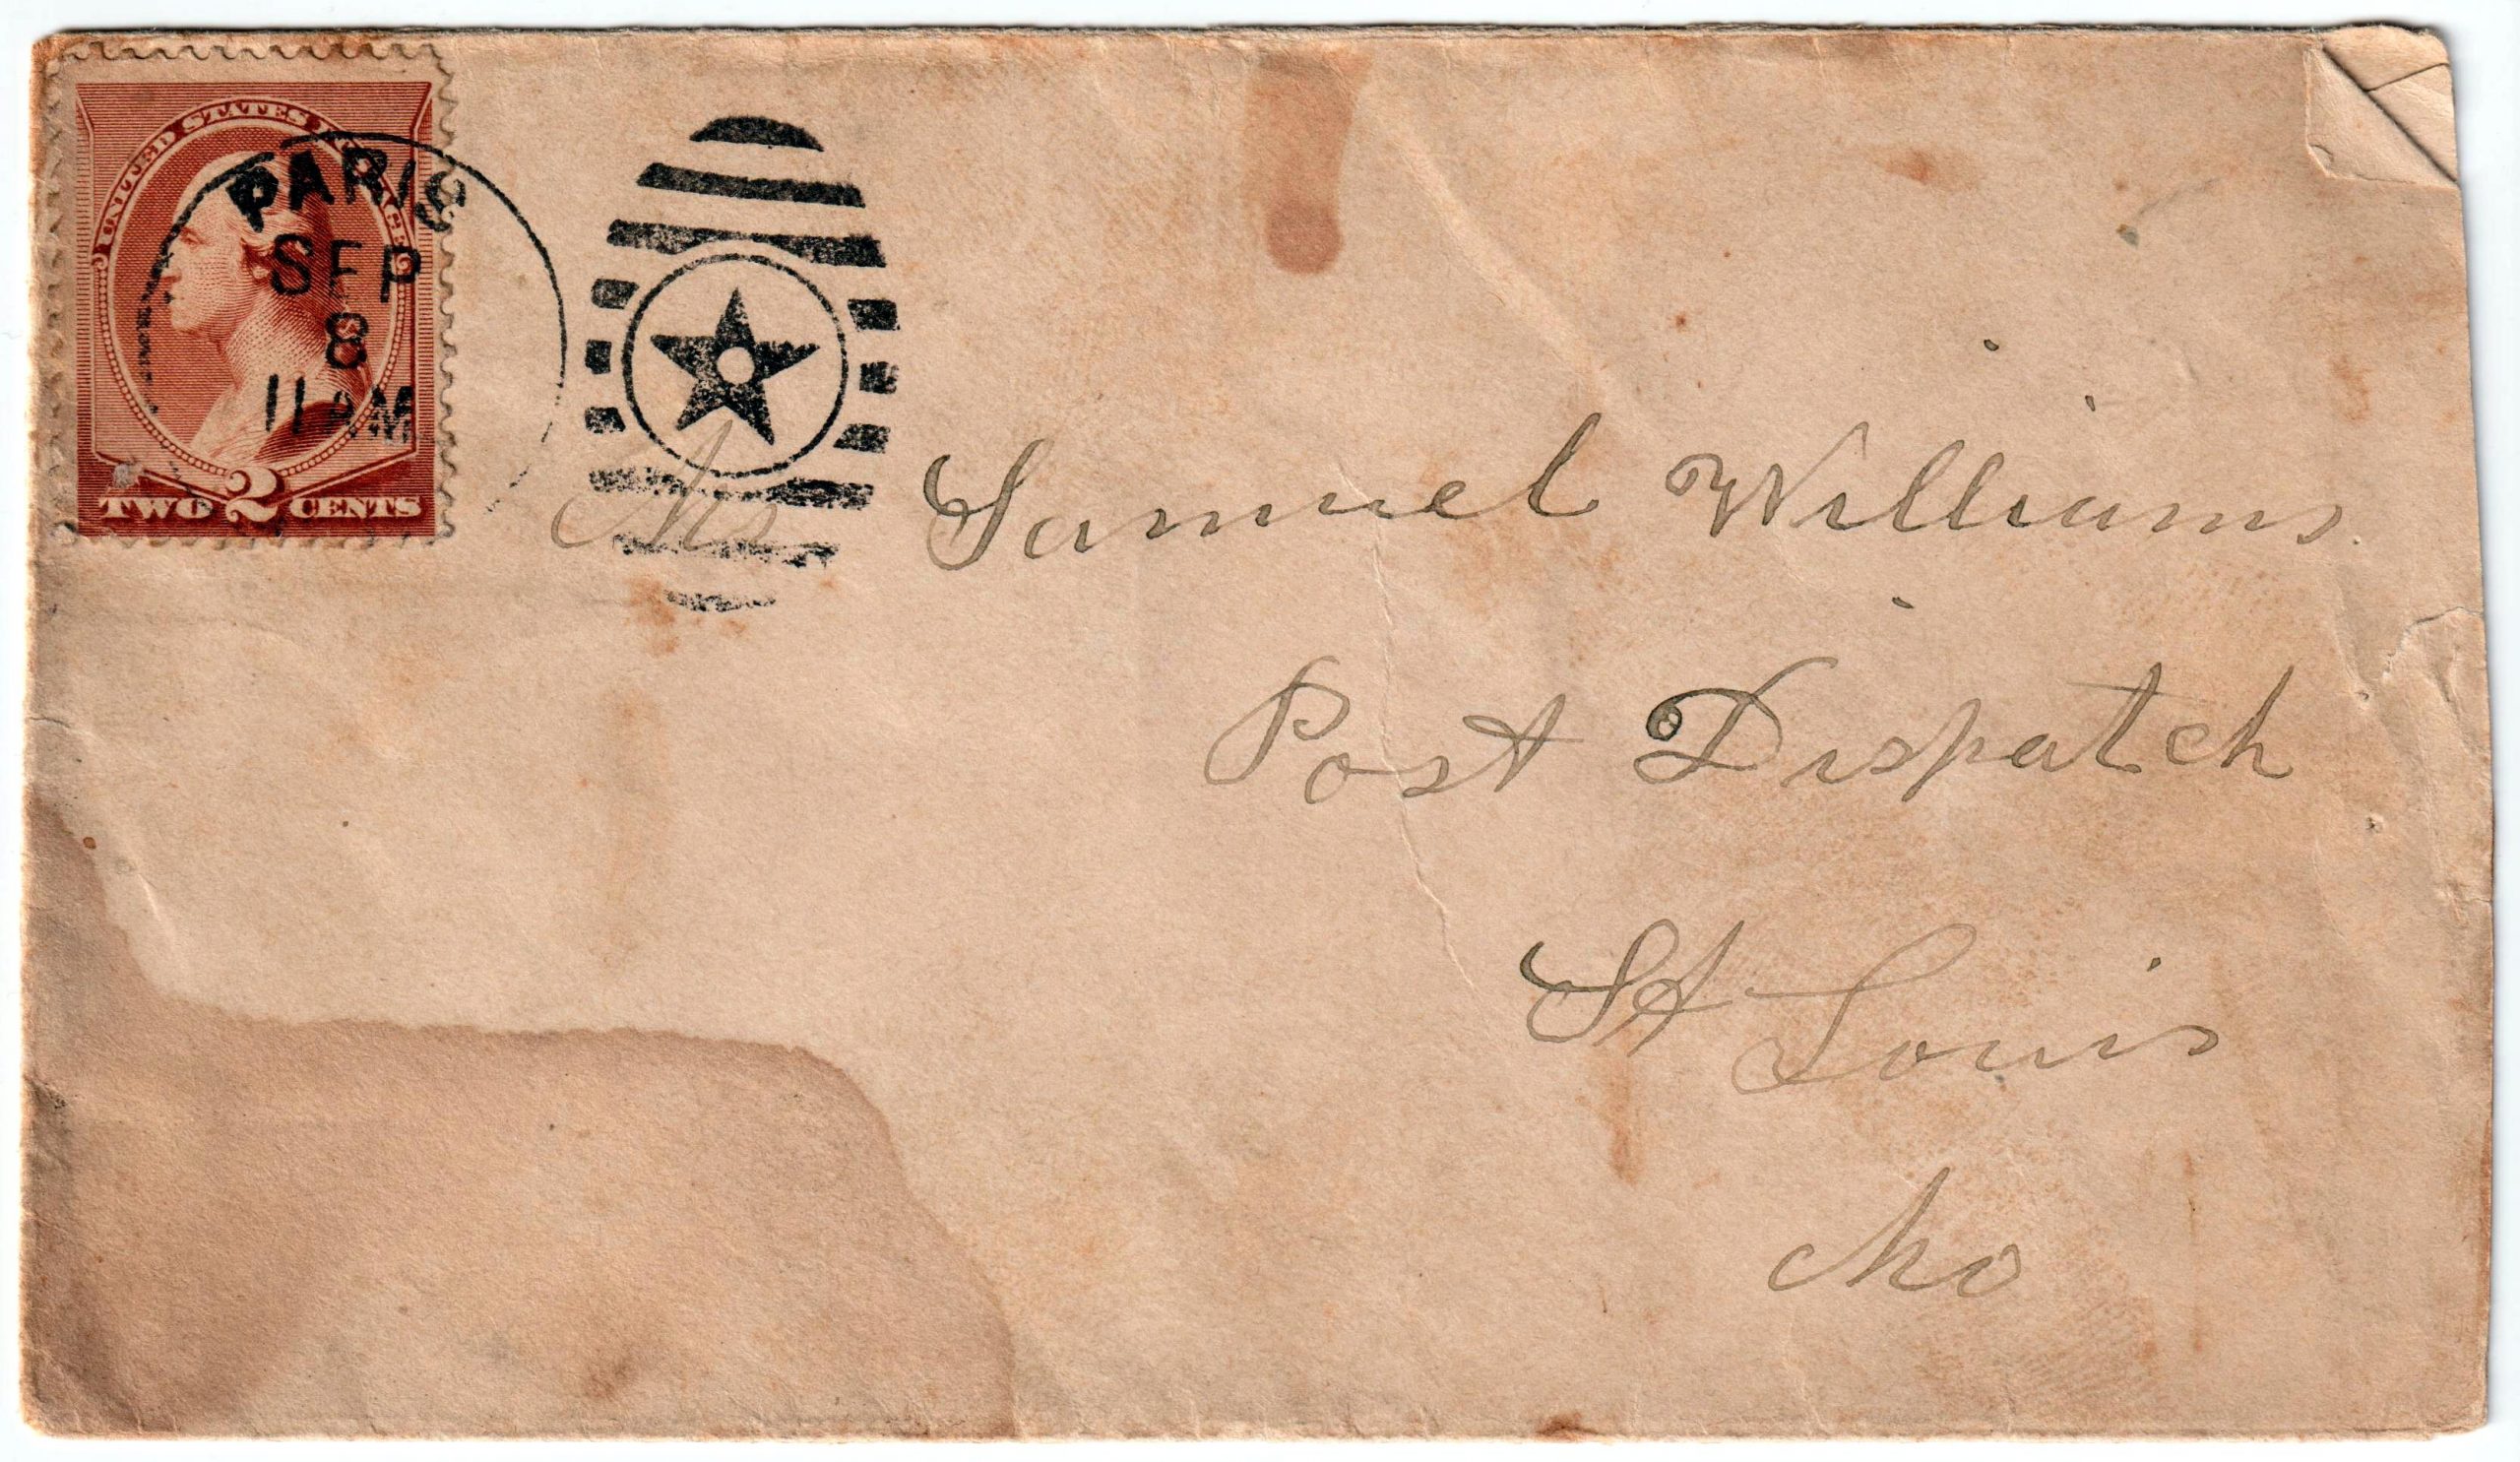 UNITED STATES POSTAGE
PARIS
SEP
8
11 AM
TWO 2 CENTS
Mr Samuel Williams
Post Dispatch
St Louis
Mo